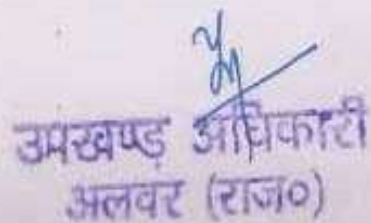 उपखण्ड अधिकारी
अलवर (राज०)